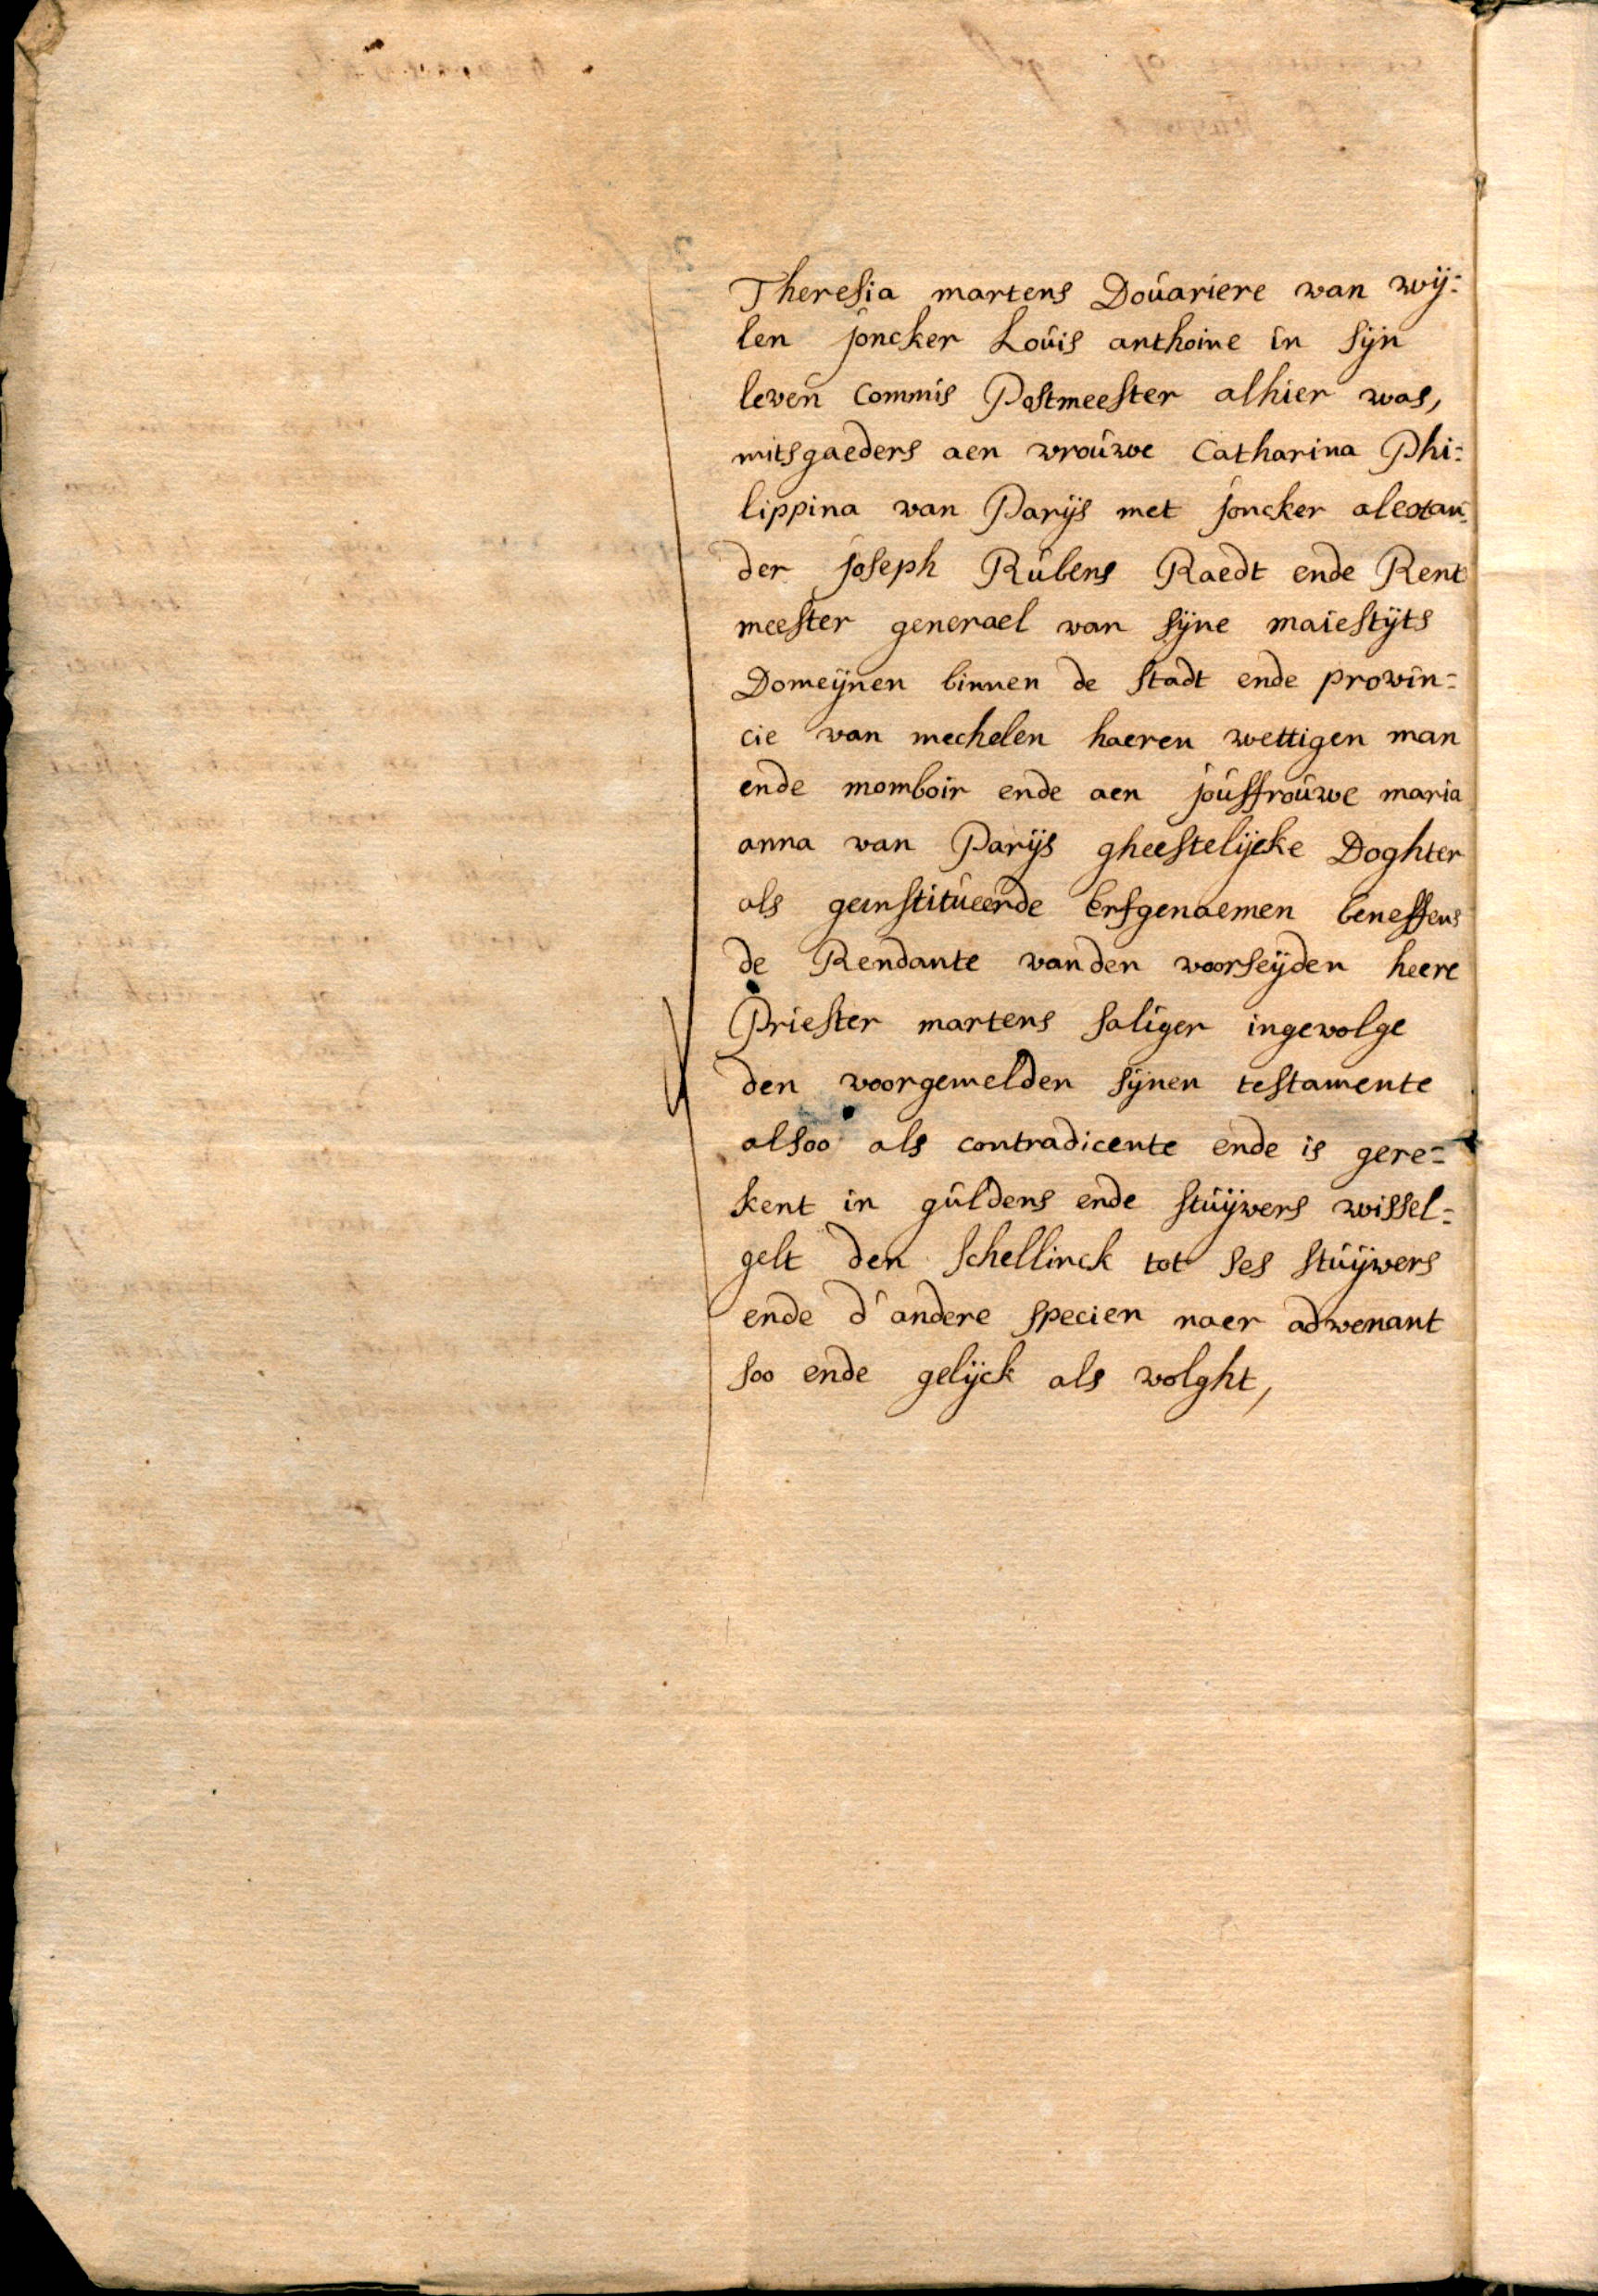 Theresia martens Douariere van wij=
len joncker Louis anthoine in sijn
leven Commis Postmeester alhier was,
mitsgaeders aen vrouwe Catharina Phi=
lippina van Parijs met joncker alexan=
der joseph Rubens Raedt ende Rent
meester generael van sijne maiestijts
Domeijnen binnen de stadt ende provin=
cie van mechelen haeren wettigen man
ende momboir ende aen jouffrouwe maria
anna van Parijs gheestelijcke Doghter
als geinstitueerde Erfgenaemen beneffens
de Rendante vanden voorseijden heere
Priester martens saliger ingevolge
den voorgemelden sijnen testamente
alsoo als contradicente ende is gere=
kent in guldens ende stuijvers wissel=
gelt den schellinck tot ses stuijvers
ende d'andere specien naer advenant
soo ende gelijck als volght,